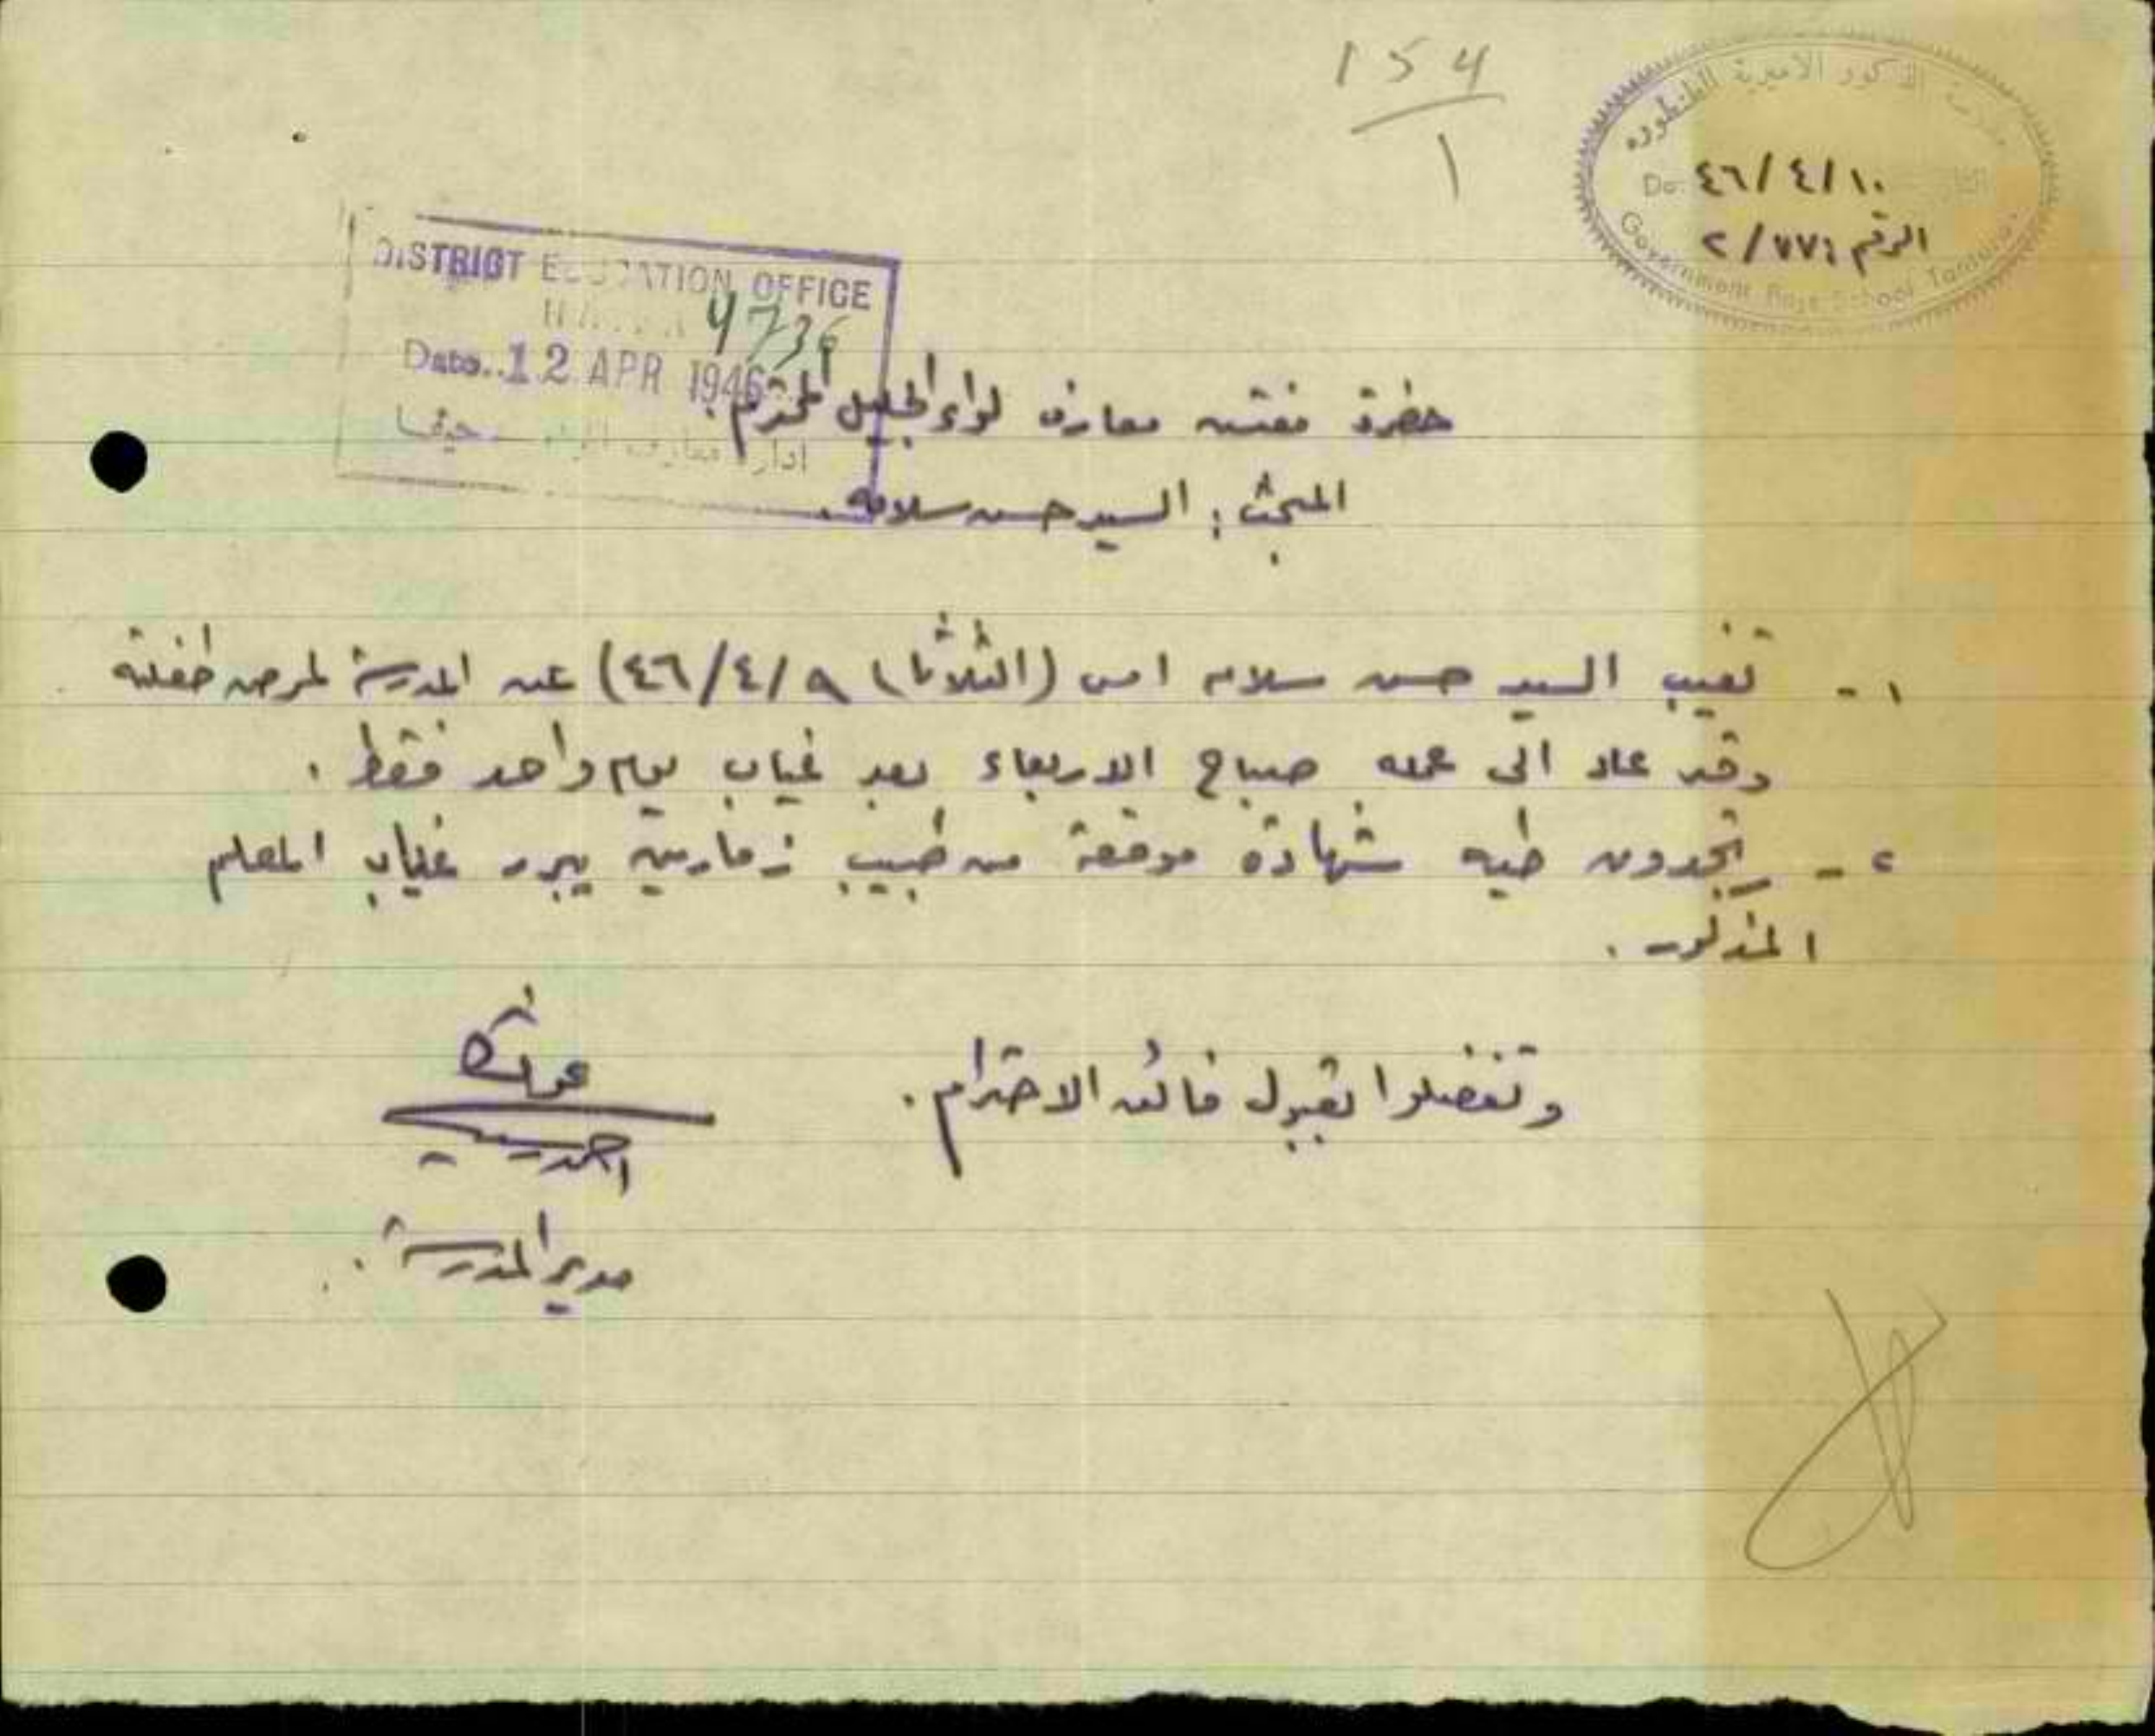 154
1
مدرسة الذكور الاميرية الطنطوره
Da: ٤٦/٤/١٠
الرقم ٢/٧٧٤
Government Boys School Tantura
DISTRICT EDUCATION OFFICE
HAIFA 9736
Date..12 APR 1946
ادارة معارف اللواء حيفا
حضرة مفتش معارف لواء الجليل المحترم.
المبحث: السيد حسن سلامه.
١- تغيب السيد حسن سلامه امس (الثلاثا ٤٦/٤/٩) عن المدرسة لمرض طفلته
وقد عاد الى عمله صباح الاربعاء بعد غياب يوم واحد فقط.
٢- تجدون طيه شهادة موقعة من طبيب زمارين يبرر غياب المعلم
المذكور.
وتفضلوا بقبول فائق الاحترام.
احمد
مدير المدرسة.